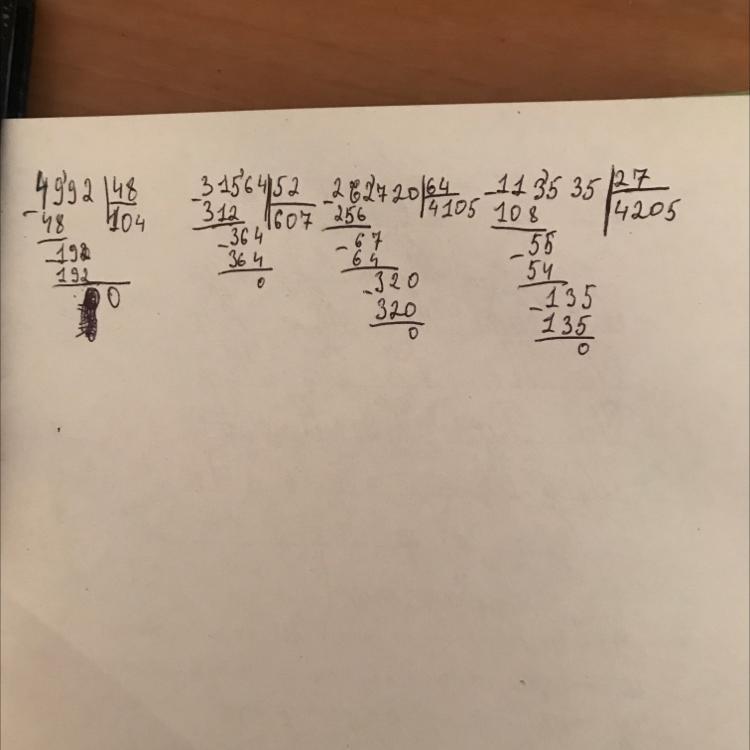 4992 48
- 48 104
- 192
192
0 0
- 31564 52
312 607
- 364
364
0
- 262720 64
256 4105
- 67
64
- 320
320
0
- 113535 27
108 4205
- 55
54
- 135
135
0